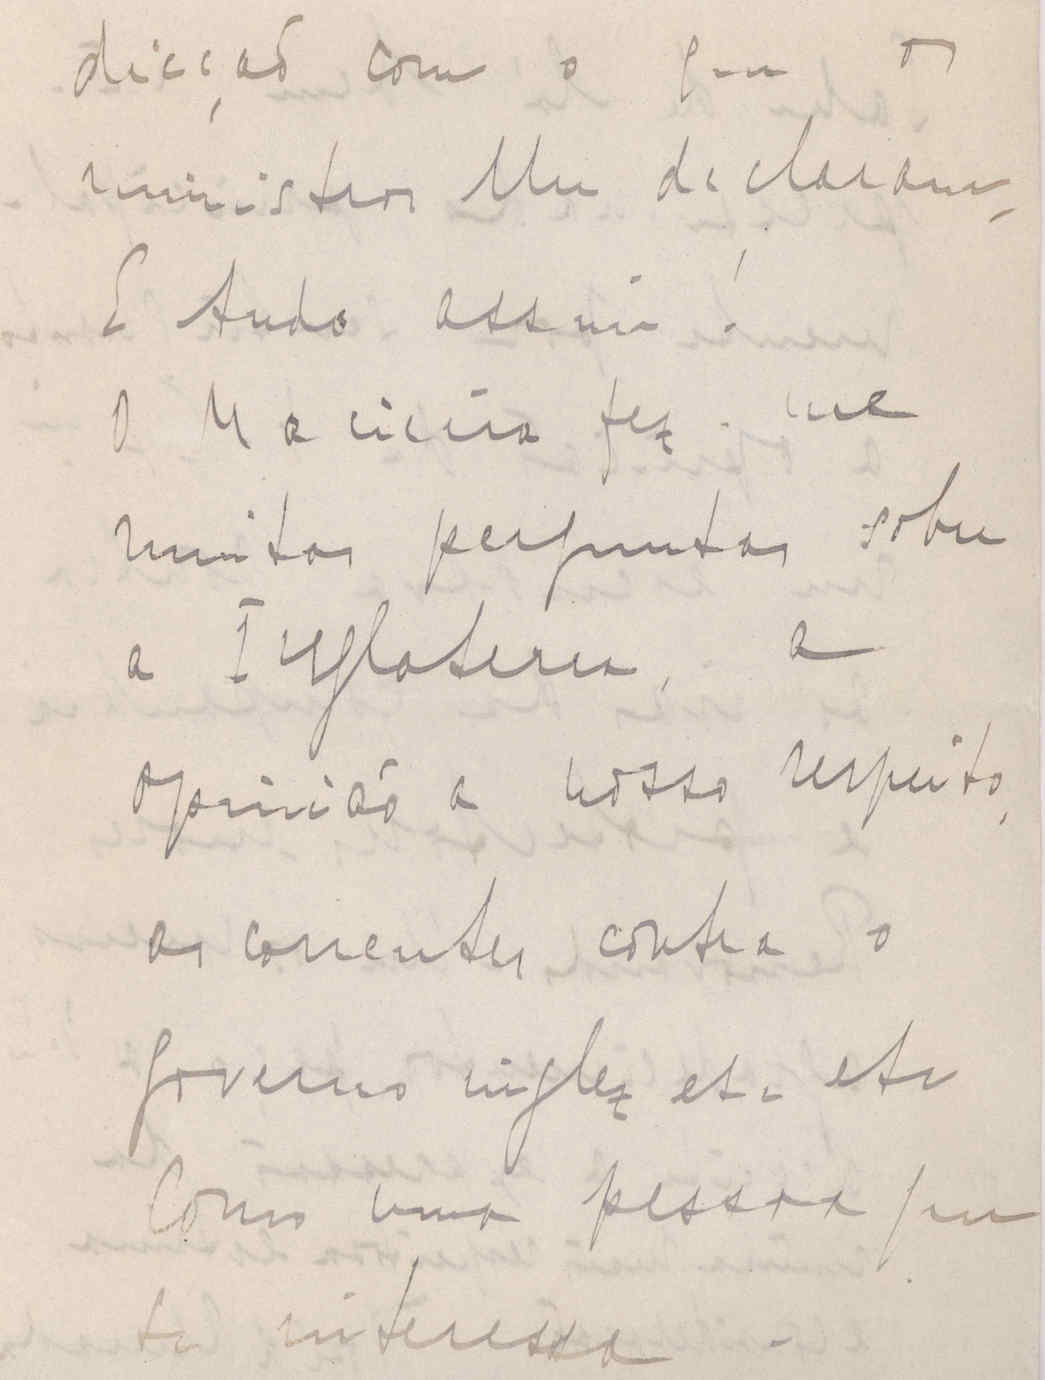 dicção com o que os
ministros lhe declaram,
E tudo assim!
O Macieira fez-me
muitas perguntas sobre
a Inglaterra, a
opinião a nosso respeito,
as correntes contra o
governo inglez etc etc
Como uma pessoa que
se interessa -